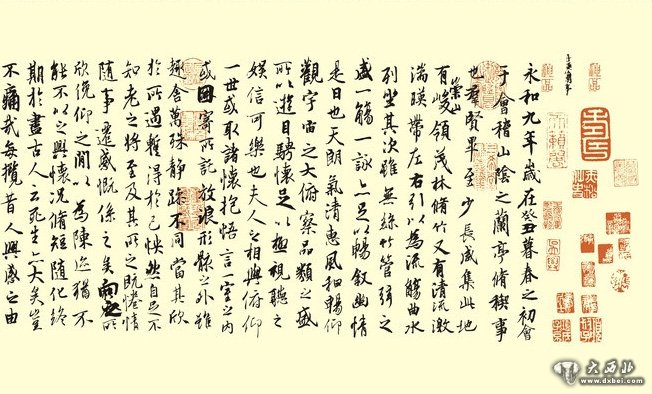 永和九年歲在癸丑暮春之初會
于會稽山陰之蘭亭脩稧事
也羣賢畢至少長咸集此地
有崇山峻領茂林脩竹又有清流激
湍暎帶左右引以為流觴曲水
列坐其次雖無絲竹管弦之
盛一觴一詠亦足以暢敘幽情
是日也天朗氣清惠風和暢仰
觀宇宙之大俯察品類之盛
所以遊目騁懷足以極視聽之
娛信可樂也夫人之相與俯仰
一世或取諸懷抱悟言一室之內
或因寄所託放浪形骸之外雖
趣舍萬殊靜躁不同當其欣
於所遇蹔得於己怏然自足不
知老之將至及其所之既惓情
隨事遷感慨係之矣向之所
欣俛仰之閒以為陳迹猶不
能不以之興懷況脩短隨化終
期於盡古人云死生亦大矣豈
不痛哉每攬昔人興感之由
大西北
www.dxbei.com